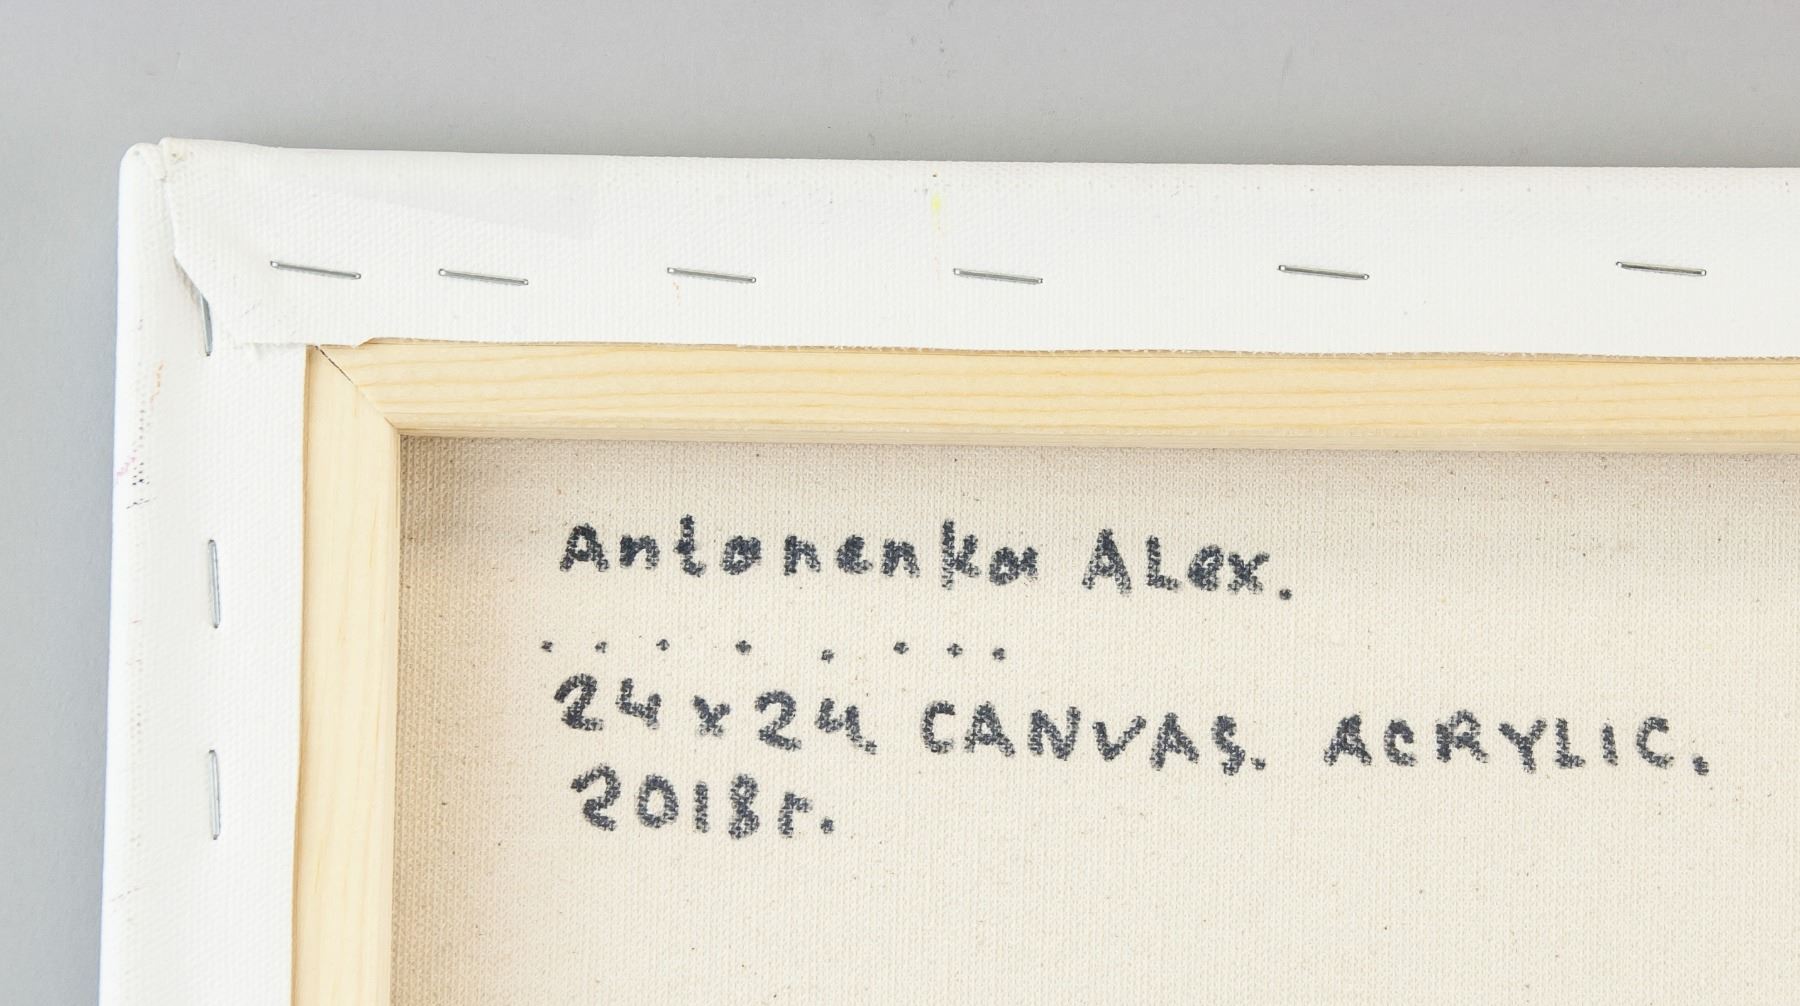 Antonenko Alex.
. . . . . . . .
24 x 24. CANVAS. ACRYLIC.
2018г.